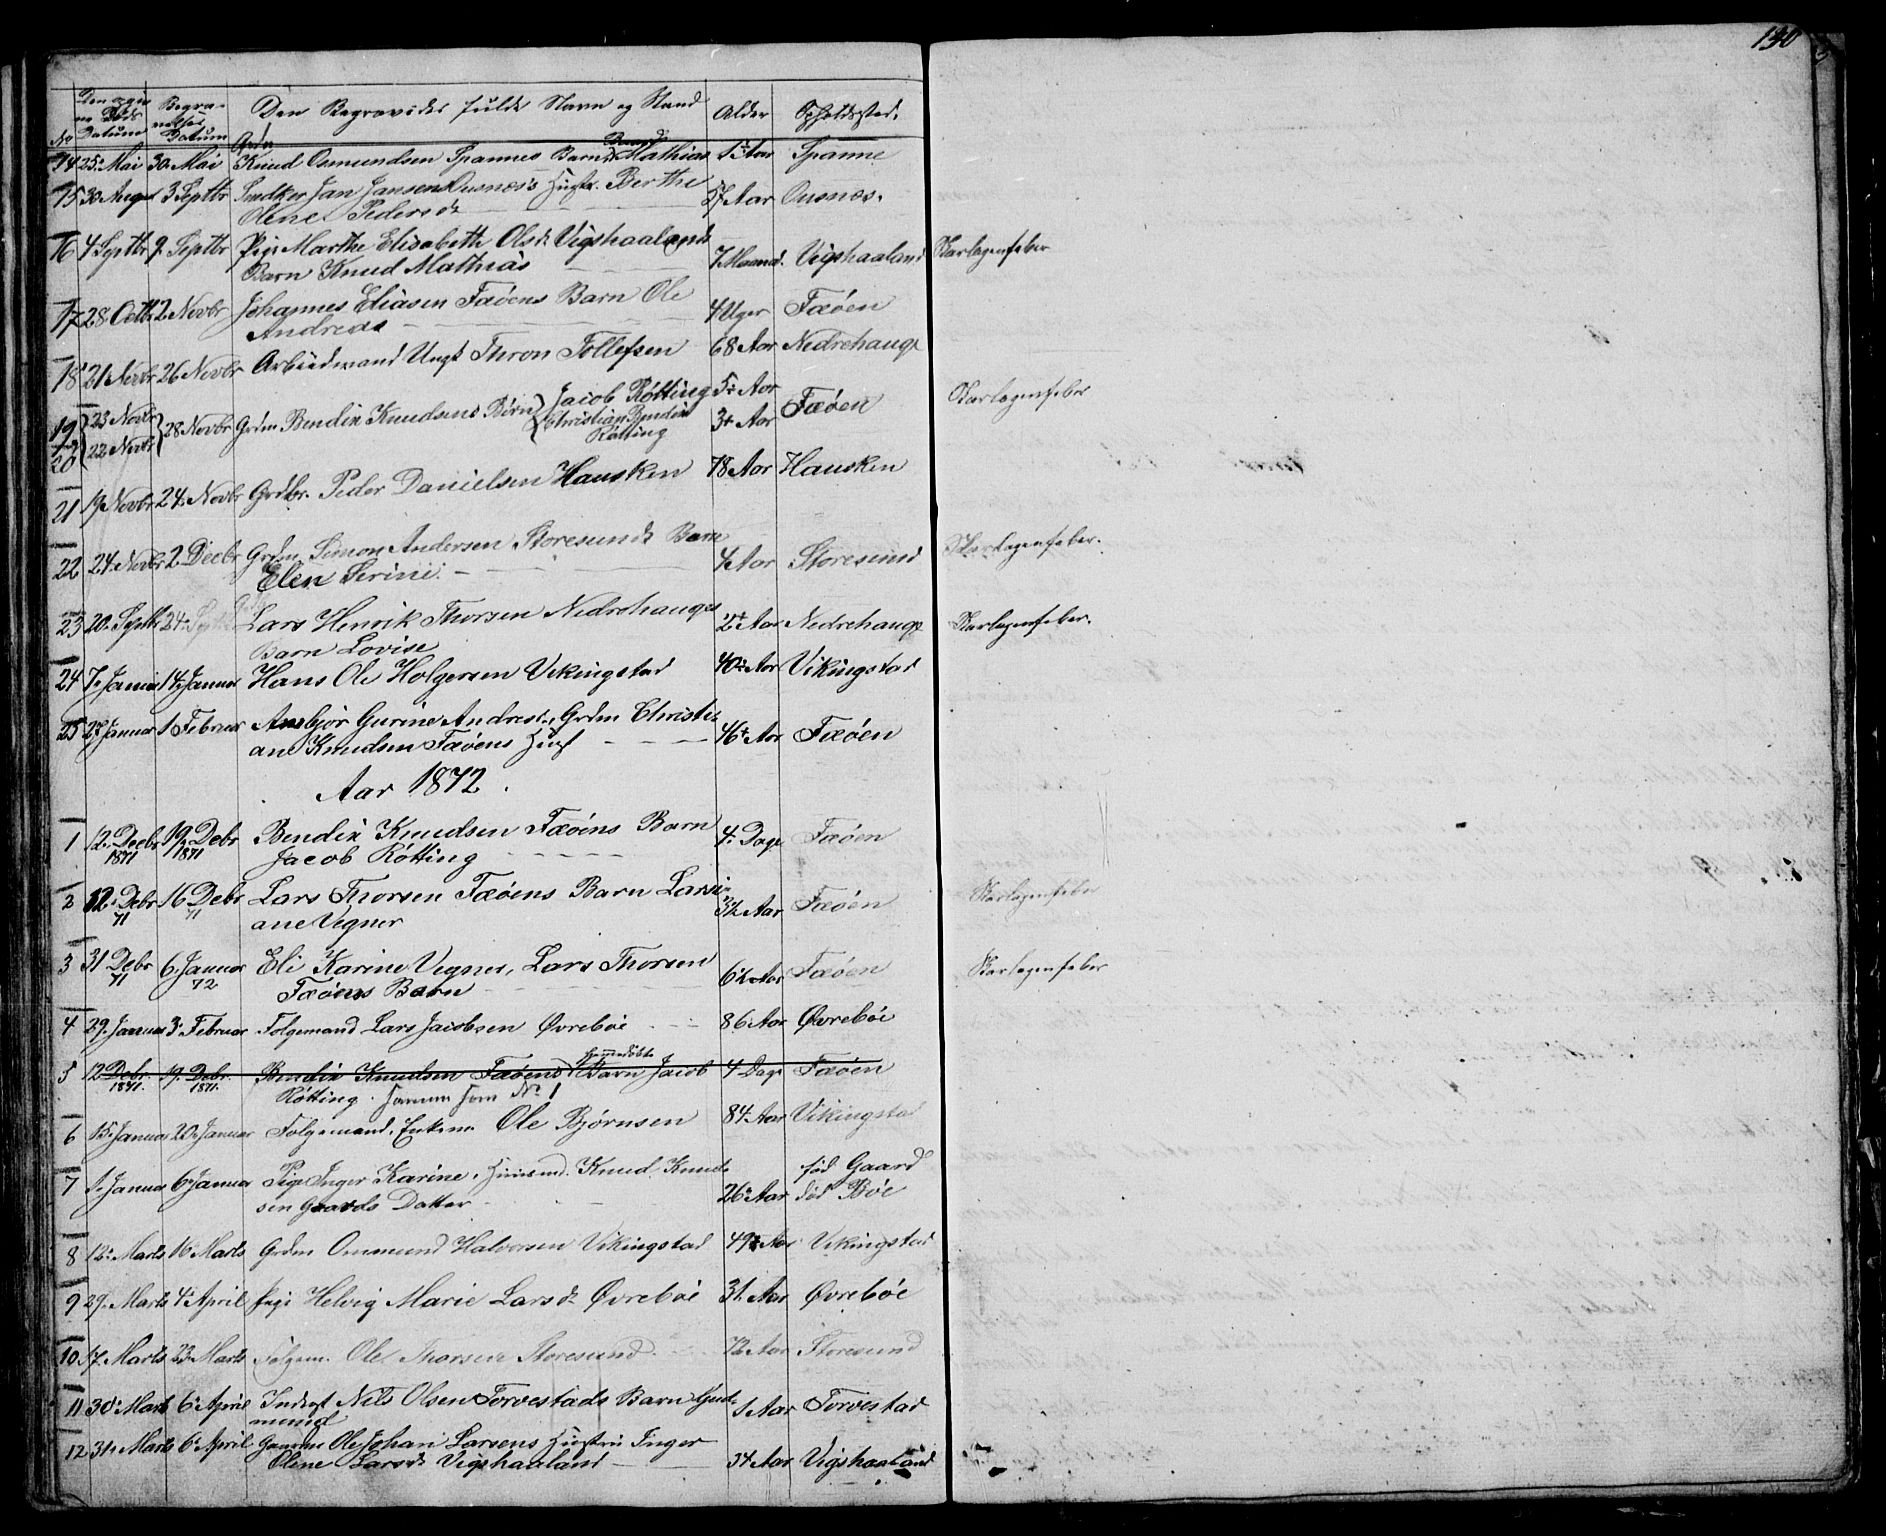 130
No Dødsdatum Begravelses Datum Den Begravedes fulde Navn og Stand Alder Opholdssted.
14 25 Mai 30 Mai Knud Osmundsen Spannes Barn Mathias 1 Aar Spanne
15 30 August 3 Septbr Jan Jansen Ousnæs's Hustr. Berthe 57 Aar Ousnæs.
Olene Pedersd.
16 4 Septbr 9 Septbr Pige Marthe Elisabeth Olsd. Vigshaalands
Barn Knud Mathias 7 Maand. Vigshaaland Skarlagensfeber
17 28 Octb. 2 Novbr Johannes Eliasen Fæøens Barn Ole
Andreas 4 Uger Fæøen
18 21 Novbr 26 Novbr Arbeidsmand Ungk Thron Tollefsen 68 Aar Nedrehauge
19 23 Novbr 28 Novbr Grdm Bendix Knudsens Børn Jacob Røtting 5 Aar Fæøen Skarlagensfeber
20 22 Novbr Christian Bendix 3 Aar
Røtting
21 19 Novbr 24 Novbr Grdbr. Peder Danielsen Hausken 78 Aar Hausken
22 24 Novbr 2 Decbr Grdm. Simon Andersen Storesunds Barn
Elen Serine. 4 Aar Storesund Skarlagensfeber.
23 20 Septbr 24 Septbr Lars Henrik Thorsen Nedrehauges
Barn Lovise 2 Aar Nedrehauge Skarlagensfeber.
24 7 Januar 14 Januar Hans Ole Holgersen Vikingstad 40 Aar Vikingstad
25 27 Januar 1 Februar Ansbjør Gurine Andresd., Grdm Christi-
an Knudsen Fæøens Hust 46 Aar Fæøen
Aar 1872.
1 12. Decbr 1871 19 Debr 1871 Bendix Knudsen Fæøens Barn
Jacob Røtting 4 Dage Fæøen
2 12. Debr 71 16 Debr 71 Lars Thorsen Fæøens Barn Larsi-
ane Vegner 3½ Aar Fæøen Skarlagensfeber
3 31 Debr 71 6 Januar 72 Eli Karine Vegner, Lars Thorsen
Fæøens Barn 6½ Aar Fæøen Skarlagensfeber
4 29 Januar 3 Februar Folgemand Lars Jacobsen Øvrebøe 86 Aar Øvrebøe
5 12 Debr. 1871. 19. Debr. 1871. Bendix Knudsen Fæøens hjemmedøbte Barn Jacob 4 Dage Fæøen
Røtting. samme som No 1
6 15 Januar 20 Januar Folgemand, Enkem. Ole Bjørnsen 84 Aar Vikingstad
7 1 Januar 6 Januar Pige Inger Karine, Huusmd. Knud Knud- født Gaard
sen Gaards Datter 26 Aar død Bøe
8 12 Marts 16 Marts Grdm Ommund Halvorsen Vikingstad 49 Aar Vikingstad
9 29. Marts 4 April Pige Helvig Marie Larsd. Øvrebøe 31 Aar Øvrebøe
10 17. Marts 23 Marts Folgem. Ole Thorsen Storesund 72 Aar Storesund
11 30 Marts 6 April Inderst Nils Olsen Torvestads Barn Gud-
mund 1 Aar Torvestad
12 31 Marts 6 April Gaardm Ole Johan Larsens Hustru Inger
Oline Larsd. Vigshaaland 34 Aar Vigshaaland